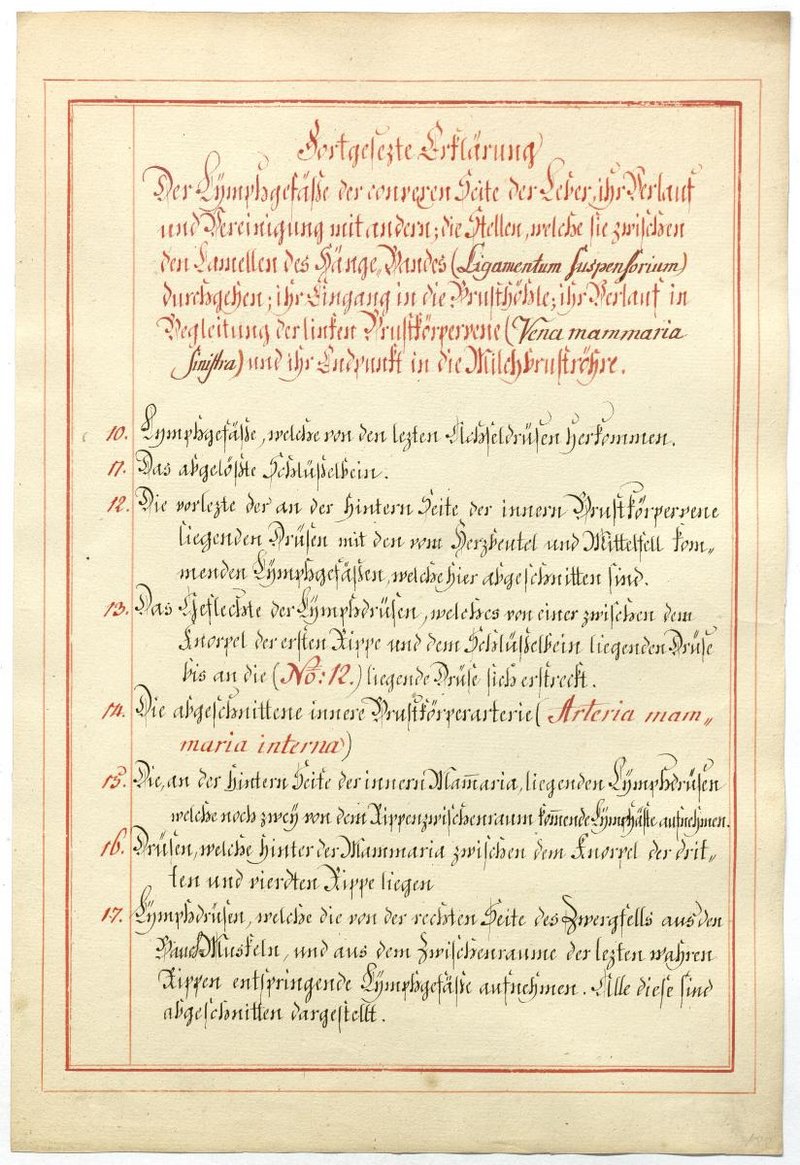 Fortgesezte Erklärung
Der Lymphgefäße der convexen Seite der Leber, ihr Verlauf
und Vereinigung mit andern; die Stellen, welche sie zwischen
den Lamellen des Hänge„Bandes (Ligamentum suspensorium)
durchgehen; ihr Eingang in die Brusthöhle; ihr Verlauf in
Begleitung der linken Brustkörpervene (Vena mammaria
sinistra) und ihr Endpunkt in die Milchbruströhre.
10. Lymphgefäße, welche von den lezten Achseldrüsen herkommen.
11. Das abgelößte Schlüßelbein.
12. Die vorlezte der an der hintern Seite der innern Brustkörpervene
liegenden Drüsen mit den vom Herzbeutel und Mittelfell kom„
menden Lymphgefäßen, welche hier abgeschnitten sind.
13. Das Geflechte der Lymphdrüsen, welches von einer zwischen dem
Knorpel der ersten Rippe und dem Schlüßelbein liegenden Drüse
bis an die (No: 12.) liegende Drüse sich erstreckt.
14. Die abgeschnittene innere Brustkörperarterie (Arteria mam„
maria interna)
15. Die, an der hintern Seite der innern Mam̄aria, liegenden Lymphdrüsen
welche noch zwey von dem Rippenzwischenraum kom̄ende Lymphäste aufnehmen.
16. Drüsen, welche hinter der Mammaria zwischen dem Knorpel der drit„
ten und vierdten Rippe liegen
17. Lymphdrüsen, welche die von der rechten Seite des Zwergfells aus den
BauchMuskeln, und aus dem Zwischenraume der lezten wahren
Rippen entspringende Lymphgefäße aufnehmen. Alle diese sind
abgeschnitten dargestellt.